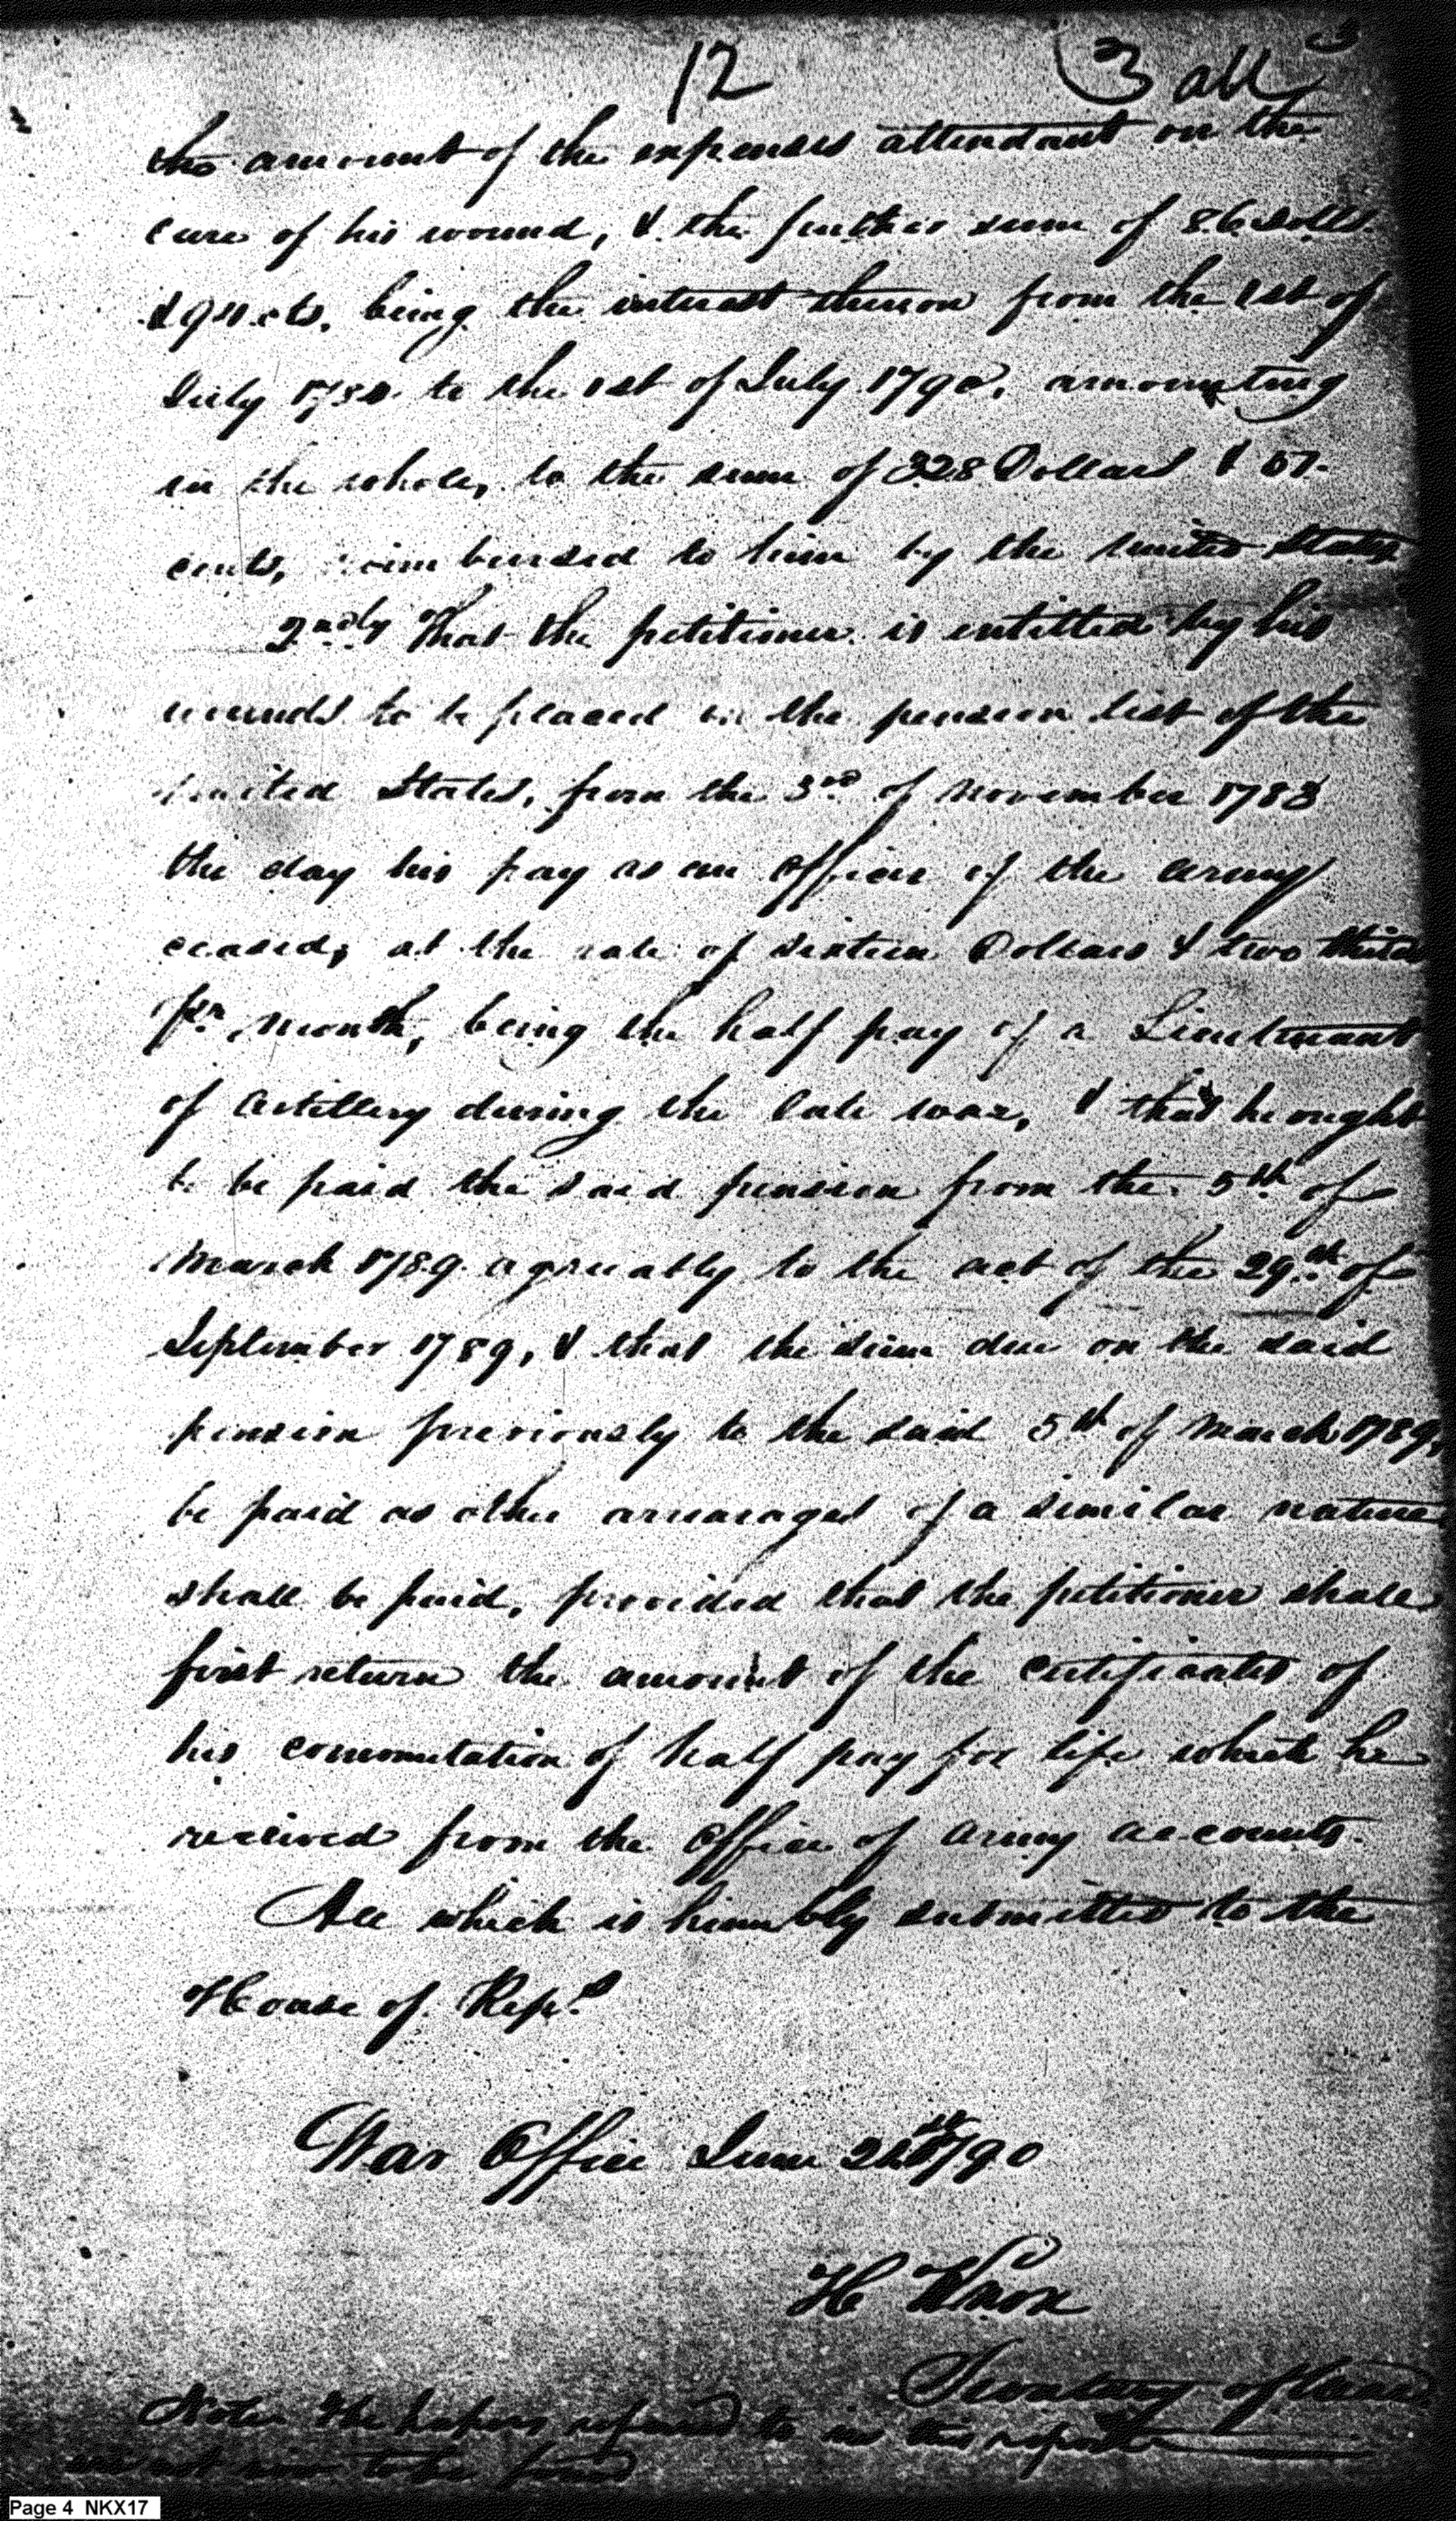 12
3 all
the amount of the expenses attendant on the
cure of his wound, & the further sum of 86 Dolls.
& 94 cts. being the interest thereon from the 1st of
July 1784 to the 1st of July 1790, amounting
in the whole, to the sum of 328 Dollars & 57.
cents, reimbursed to him by the united States
2ndly That the petitioner is entitled by his
wounds to be placed on the pension list of the
united States, from the 3rd of November 1783
the day his pay as an officer of the army
ceased, at the rate of sixteen Dollars & two thirds
pr. month, being the half pay of a Lieutenant
of Artillery during the late war, & that he ought
to be paid the said pension from the 5th of
March 1789 agreeably to the act of the 29th of
September 1789, & that the sum due on the said
pension previously to the said 5th of March 1789,
be paid as other arrearages of a similar nature
shall be paid, provided that the petitioner shall
first return the amount of the certificates of
his commutation of half pay for life which he
received from the Office of Army accounts.
All which is humbly submitted to the
House of Reps.
War Office June 1790
H Knox
Secretary of War
Note. The papers referred to in this report
are not now to be found
Page 4 NKX17